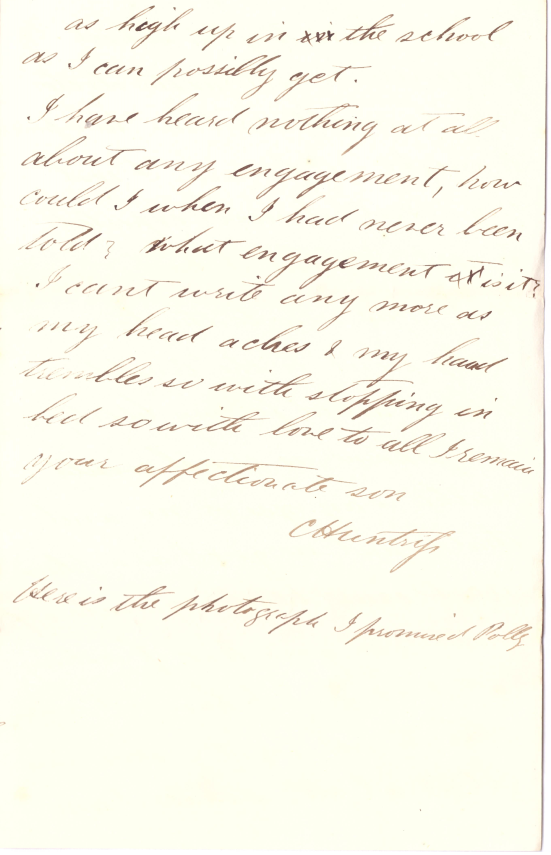 as high up in in the school
as I can possibly get.
I have heard nothing at all
about any engagement, how
could I when I had never been
told? What engagement it is it?
I cant write any more as
my head aches & my hand
trembles so with stopping in
bed so with love to all I remain
your affectionate son
C Huntriss
Here is the photograph I promised Polly